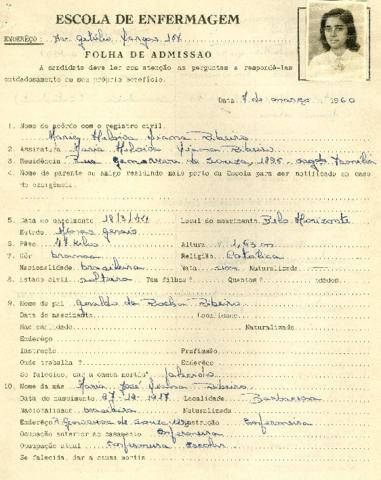 ESCOLA DE ENFERMAGEM
ENDERÊÇO: Av. Getúlio Vargas
FOLHA DE ADMISSÃO
A candidata deve ler com atenção as perguntas e respondê-las
cuidadosamente em seu próprio benefício.
Data 7 de março 1960
1. Nome de acôrdo com o registro civil.
Maria Heloisa Vianna Ribeiro
2. Assinatura Maria Heloisa Vianna Ribeiro
3. Residência Rua de Souza, 1895 - Sagda Família
4. Nome de parente ou amigo residindo mais perto da Escola para ser notificado no caso
de emergência.
5. Data do nascimento 18/3/ Local do nascimento Belo Horizonte
Estado Minas Gerais
6. Pêso kilos Altura 1,63 m
7. Côr branca Religião Católica
Nacionalidade brasileira Nata sim Naturalizada
8. Estado civil solteira Tem filhos? Quantos? Idades.
9. Nome do pai Geraldo da Rocha Ribeiro
Data do nascimento. Localidade
Nacionalidade Naturalizado
Enderêço
Instrução Profissão.
Onde trabalha?
Se falecido, dar a causa mortis falecido
10. Nome da mãe Maria José Vianna Ribeiro
Data do nascimento 27-12-1917 Localidade Barbacena
Nacionalidade brasileira Naturalizada
Enderêço de Souza Instrução Enfermeira
Ocupação anterior ao casamento Enfermeira
Ocupação atual Enfermeira Escolar
Se falecida, dar a causa mortis